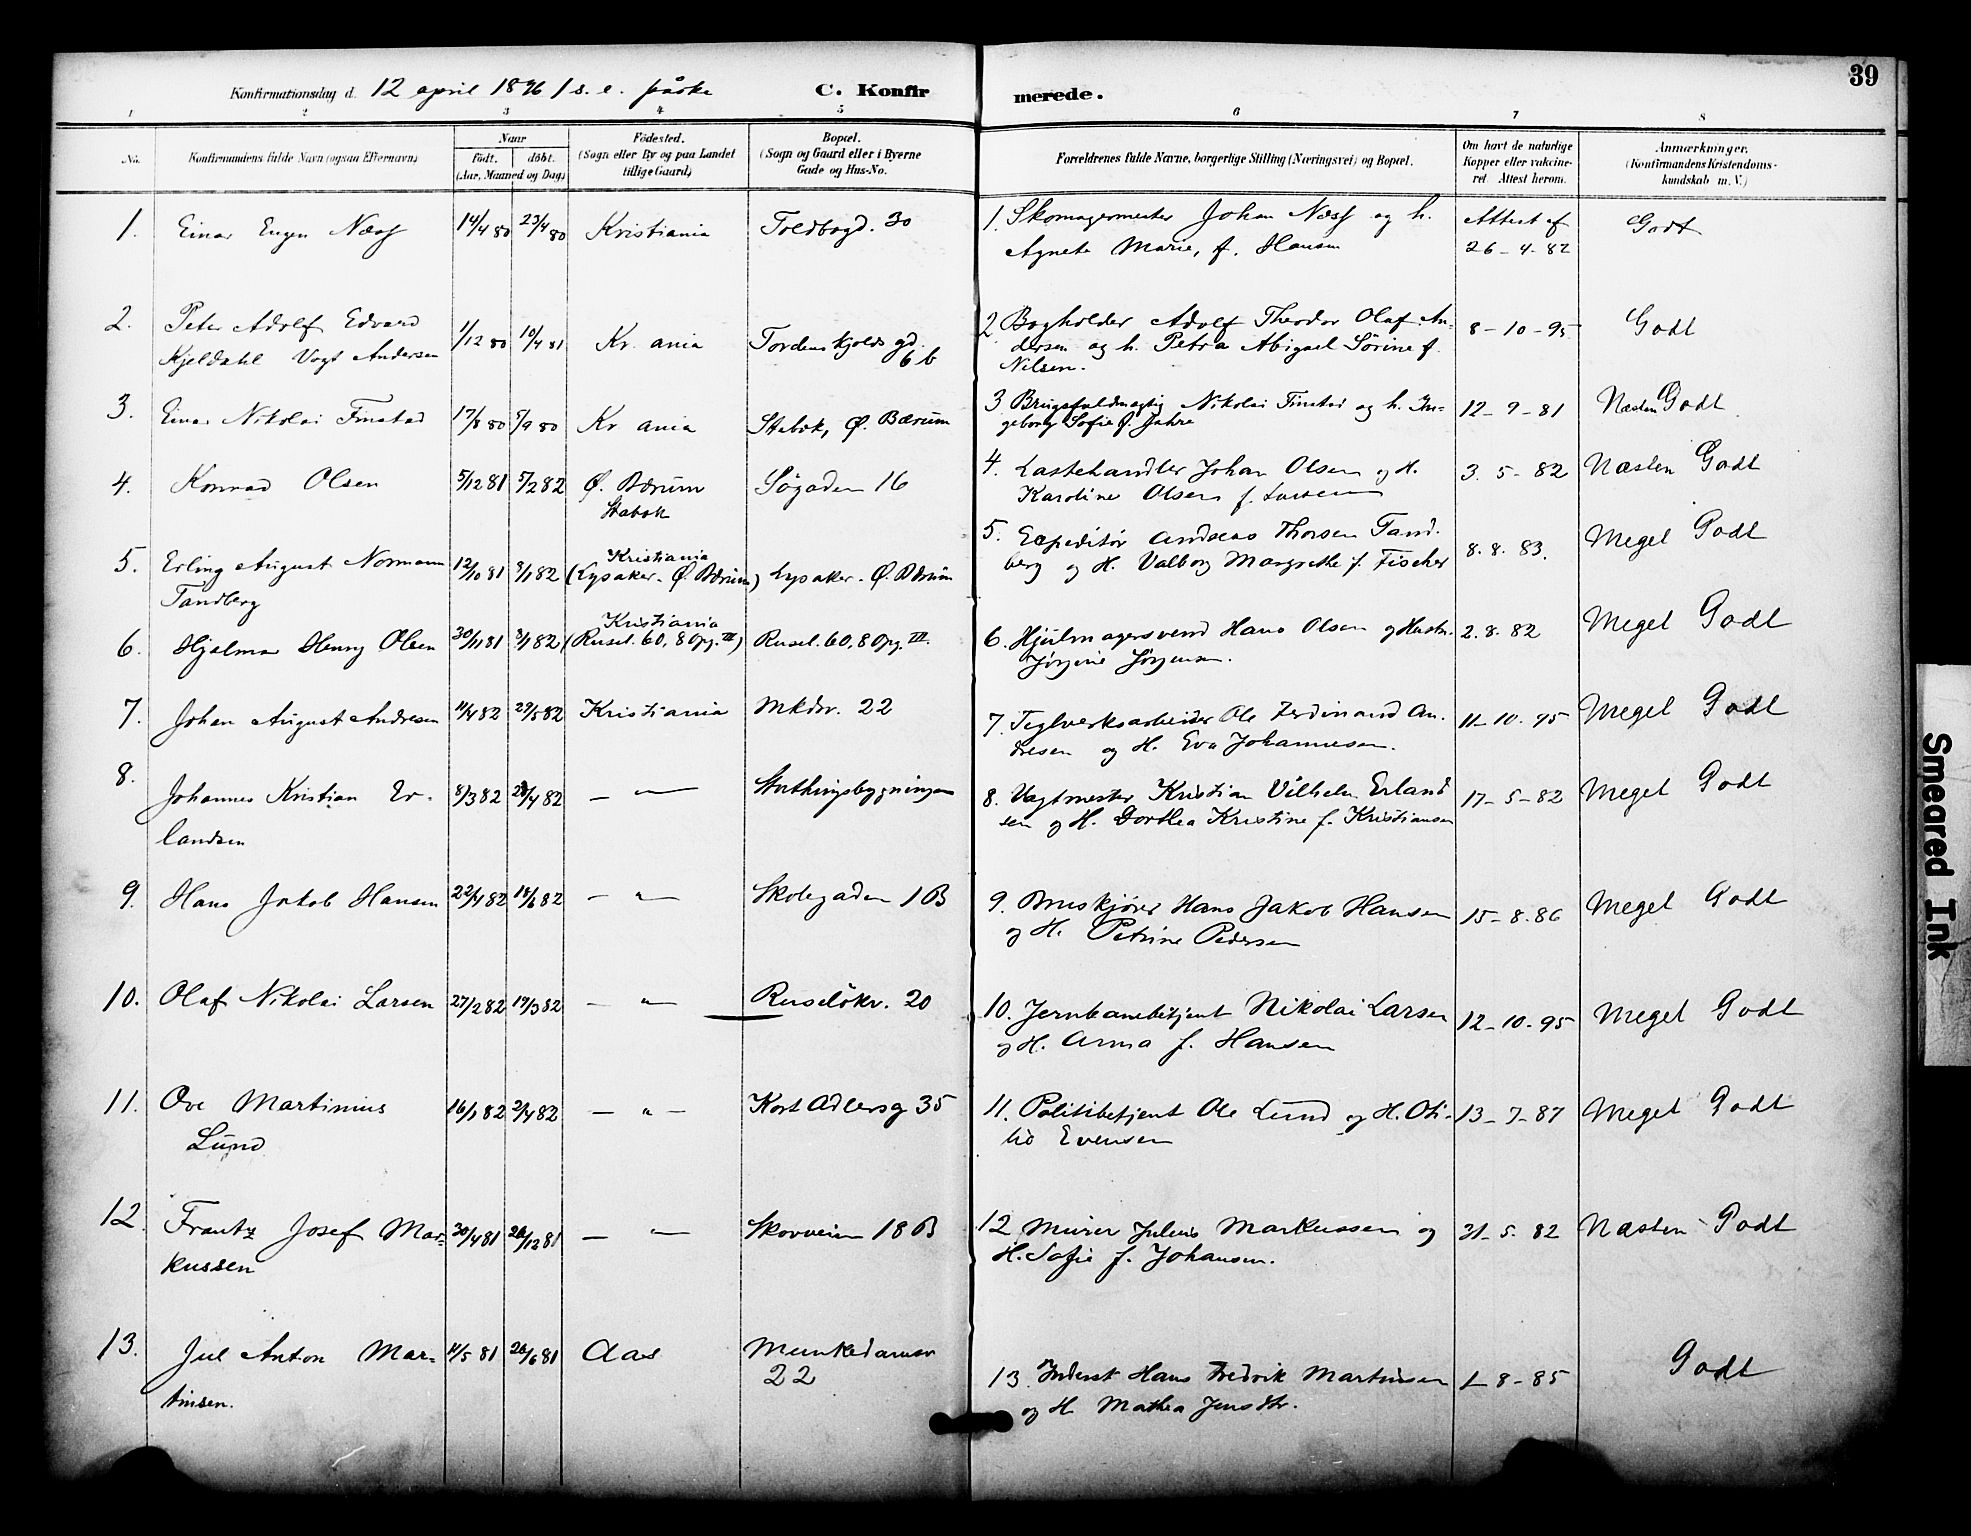 39
Konfirmationsdag d. 12 april 1896 1 s. e. påske
C. Konfirmerede.
1 2 3 4 5 6 7 8
No.
Konfirmandens fulde Navn (ogsaa Efternavn)
Naar
födt. döbt.
(Aar, Maaned og Dag)
Födested.
(Sogn eller By og paa Landet
tillige Gaard)
Bopæl.
(Sogn og Gaard eller i Byerne
Gade og Hus-No.
Forældrenes fulde Navne, borgerlige Stilling (Næringsvei) og Bopæl.
Om havt de naturlige
Kopper eller vakcine-
ret. Attest herom.
Anmærkninger.
(Konfirmandens Kristendoms-
kundskab m. V.)
1. Einar Eugen Næss 14/4 80 23/4 80 Kristiania Toldbogd. 30
1. Skomagermester Johan Næss og h. Attest af Godt
Agnete Marie, f. Hansen 26-4-82
2. Peter Adolf Edvard
Kjeldahl Vogt Andersen 1/12 80 10/4 81 Kr. ania Tordenskjolds gd.
6 b
2 Bogholder Adolf Theodor Olaf An- 8-10-95 Godt
dersen og h. Petra Abigael Sørine f.
Nilsen.
3. Einar Nikolai Finstad 17/8 80 5/9 80 Kr ania Stabæk, Ø. Bærum
3 Brugsfuldmægtig Nikolai Finstad og h. In- 12-9-81 Næsten Godt
geborg Sofie f. Jahre
4. Konrad Olsen 5/12 81 5/2 82 Ø. Bærum Søgaden 16
Stabæk
4. Lastehandler Johan Olsen og H. 3. 5-82 Næsten Godt
Karoline Olsen f. Larsen
5. Erling August Normann 12/10 81 8/1 82 Kristiania
(Lysaker. Ø. Bærum) Lysaker. Ø. Bærum
Tandberg
5. Expeditør Andreas Thorsen Tand- 8. 8. 83. Meget Godt
berg og H. Valborg Margrethe f. Fischer
6. Hjalmar Henry Olsen 30/11 81 8/1 82 Kristiania
(Rusel. 60, 8 Opg. III) Rusel. 60, 8 Opg. III.
6. Hjulmagersvend Hans Olsen og Hustr. 2. 8. 82 Meget Godt
Jørgine Jørgensen.
7. Johan August Andresen 11/4 82 29/5 82 Kristiania Mkdv. 22
7. Teglverksarbeider Ole Ferdinand An- 11-10. 95 Meget Godt
dresen og H. Eva Johannesen.
8. Johannes Kristian Er- 8/3 82 /4 82 — " — Stortingsbygningen
landsen
8. Vagtmester Kristian Vilhelm Erland 17-5-82 Meget Godt
sen og H. Dorthea Kristine f. Kristiansen
9. Hans Jakob Hansen 22/4 82 18/6 82 — " — Skolegaden 1 B
9. Bruskjører Hans Jakob Hansen 15-8. 86 Meget Godt
og H. Petrine Pedersen
10. Olaf Nikolai Larsen 27/2 82 19/3 82 — " — Ruseløkv. 20
10. Jernbanebetjent Nikolai Larsen 12-10-95 Meget Godt
og H. Anna f. Hansen
11. Ove Martinius 16/1 82 2/4 82 — " — Kort Adlersg 35
Lund
11. Politibetjent Ole Lund og H. Oti- 13-7-87 Meget Godt
lio Evensen
12. Frantz Josef Mar- 30/4 81 26/12 81 — " — Skovveien 18 B
kussen
12 Murer Julius Markussen og 31-5-82 Næsten Godt
H. Sofie f. Johansen.
13. Jul Anton Mar- 11/5 81 26/6 81 Aas Munkedamsv
22
tinsen.
13. Inderst Hans Fredrik Martinsen 1-8-85 Godt
og H Mathea Jensdtr.
Smeared Ink